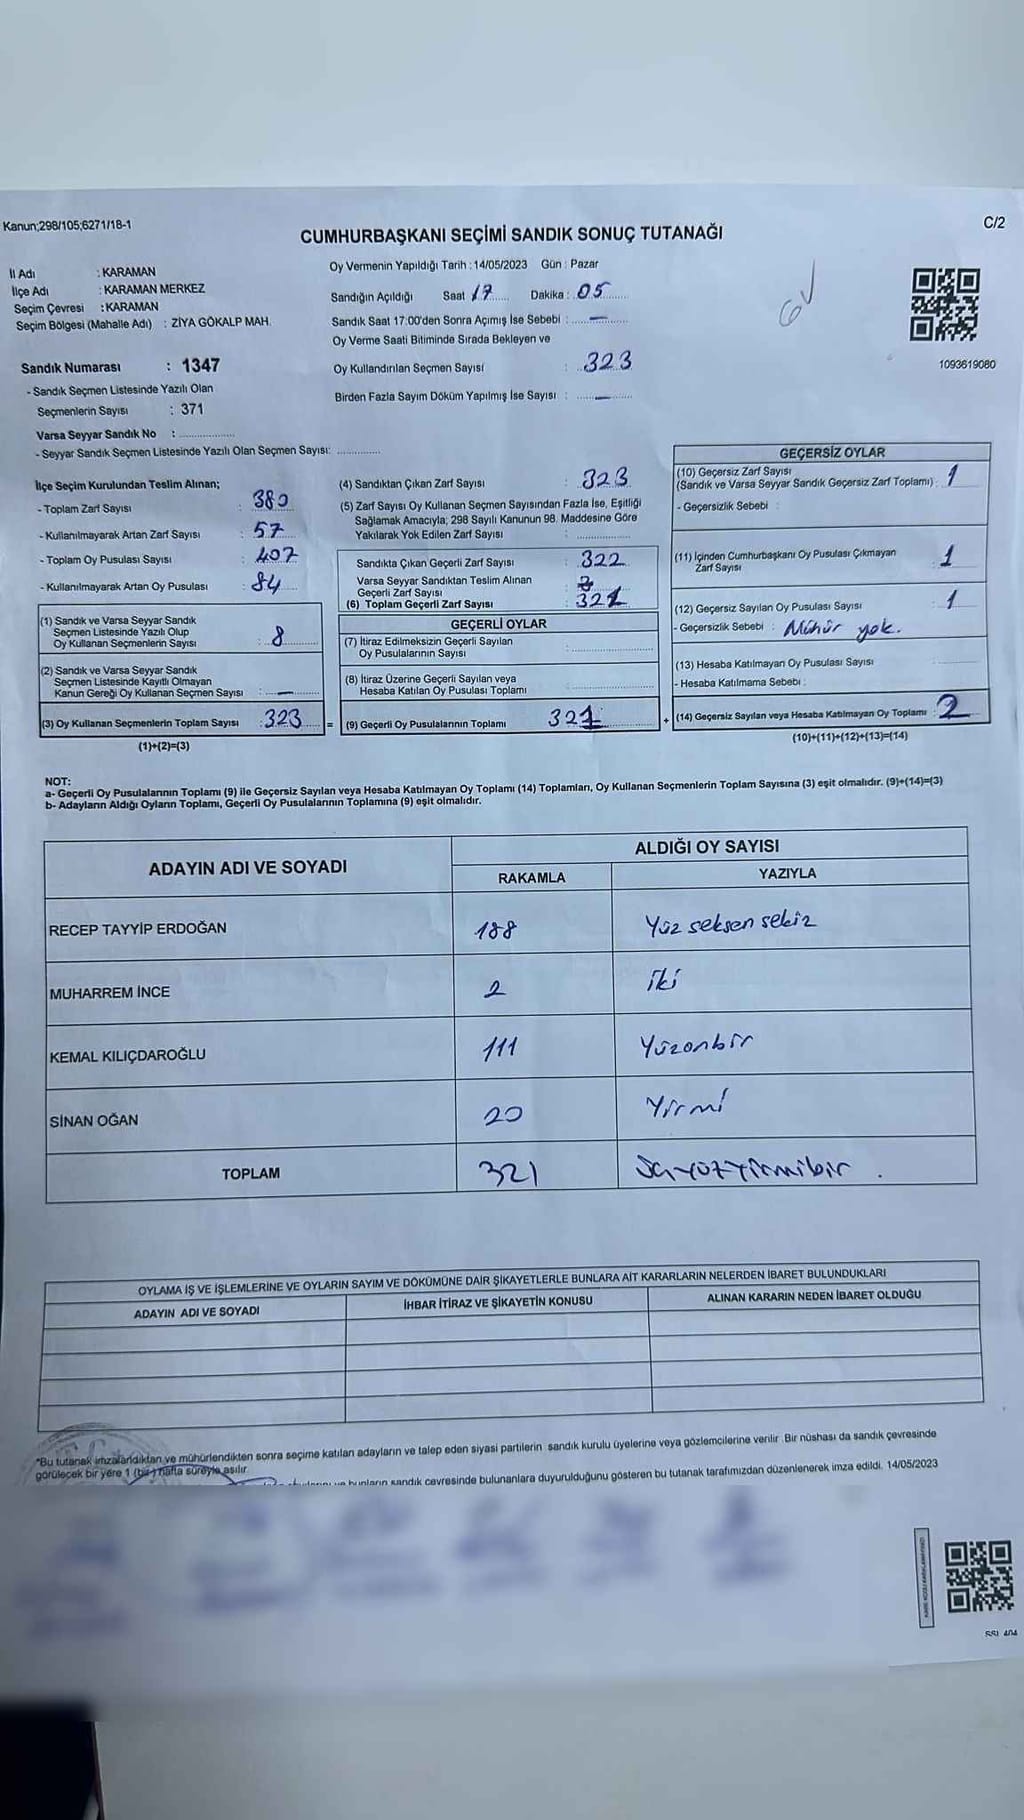 Kanun;298/105;6271/18-1
C/2
CUMHURBAŞKANI SEÇİMİ SANDIK SONUÇ TUTANAĞI
İl Adı : KARAMAN
İlçe Adı : KARAMAN MERKEZ
Seçim Çevresi : KARAMAN
Seçim Bölgesi (Mahalle Adı) : ZİYA GÖKALP MAH.
Sandık Numarası : 1347
- Sandık Seçmen Listesinde Yazılı Olan
Seçmenlerin Sayısı : 371
Varsa Seyyar Sandık No : ..............
- Seyyar Sandık Seçmen Listesinde Yazılı Olan Seçmen Sayısı: ............
Oy Vermenin Yapıldığı Tarih : 14/05/2023 Gün : Pazar
Sandığın Açıldığı Saat 17 Dakika : 05
Sandık Saat 17:00'den Sonra Açımış İse Sebebi : —
Oy Verme Saati Bitiminde Sırada Bekleyen ve
Oy Kullandırılan Seçmen Sayısı : 323
Birden Fazla Sayım Döküm Yapılmış İse Sayısı : —
1093619080
İlçe Seçim Kurulundan Teslim Alınan;
- Toplam Zarf Sayısı : 380
- Kullanılmayarak Artan Zarf Sayısı : 57
- Toplam Oy Pusulası Sayısı : 407
- Kullanılmayarak Artan Oy Pusulası : 84
(1) Sandık ve Varsa Seyyar Sandık
Seçmen Listesinde Yazılı Olup
Oy Kullanan Seçmenlerin Sayısı : 8
(2) Sandık ve Varsa Seyyar Sandık
Seçmen Listesinde Kayıtlı Olmayan
Kanun Gereği Oy Kullanan Seçmen Sayısı : —
(3) Oy Kullanan Seçmenlerin Toplam Sayısı : 323
(1)+(2)=(3)
(4) Sandıktan Çıkan Zarf Sayısı : 323
(5) Zarf Sayısı Oy Kullanan Seçmen Sayısından Fazla İse, Eşitliği
Sağlamak Amacıyla; 298 Sayılı Kanunun 98. Maddesine Göre
Yakılarak Yok Edilen Zarf Sayısı :
Sandıkta Çıkan Geçerli Zarf Sayısı : 322
Varsa Seyyar Sandıktan Teslim Alınan
Geçerli Zarf Sayısı :
(6) Toplam Geçerli Zarf Sayısı :
GEÇERLİ OYLAR
(7) İtiraz Edilmeksizin Geçerli Sayılan
Oy Pusulalarının Sayısı :
(8) İtiraz Üzerine Geçerli Sayılan veya
Hesaba Katılan Oy Pusulası Toplamı :
= (9) Geçerli Oy Pusulalarının Toplamı 321
GEÇERSİZ OYLAR
(10) Geçersiz Zarf Sayısı
(Sandık ve Varsa Seyyar Sandık Geçersiz Zarf Toplamı) : 1
- Geçersizlik Sebebi :
(11) İçinden Cumhurbaşkanı Oy Pusulası Çıkmayan
Zarf Sayısı : 1
(12) Geçersiz Sayılan Oy Pusulası Sayısı : 1
- Geçersizlik Sebebi : Mühür yok.
(13) Hesaba Katılmayan Oy Pusulası Sayısı :
- Hesaba Katılmama Sebebi :
+ (14) Geçersiz Sayılan veya Hesaba Katılmayan Oy Toplamı : 2
(10)+(11)+(12)+(13)=(14)
NOT:
a- Geçerli Oy Pusulalarının Toplamı (9) ile Geçersiz Sayılan veya Hesaba Katılmayan Oy Toplamı (14) Toplamları, Oy Kullanan Seçmenlerin Toplam Sayısına (3) eşit olmalıdır. (9)+(14)=(3)
b- Adayların Aldığı Oyların Toplamı, Geçerli Oy Pusulalarının Toplamına (9) eşit olmalıdır.
ADAYIN ADI VE SOYADI
ALDIĞI OY SAYISI
RAKAMLA YAZIYLA
RECEP TAYYİP ERDOĞAN 188 Yüz seksen sekiz
MUHARREM İNCE 2 iki
KEMAL KILIÇDAROĞLU 111 Yüzonbir
SİNAN OĞAN 20 Yirmi
TOPLAM 321 üçyüzyirmibir .
OYLAMA İŞ VE İŞLEMLERİNE VE OYLARIN SAYIM VE DÖKÜMÜNE DAİR ŞİKAYETLERLE BUNLARA AİT KARARLARIN NELERDEN İBARET BULUNDUKLARI
ADAYIN ADI VE SOYADI İHBAR İTİRAZ VE ŞİKAYETİN KONUSU ALINAN KARARIN NEDEN İBARET OLDUĞU
*Bu tutanak imzalandıktan ve mühürlendikten sonra seçime katılan adayların ve talep eden siyasi partilerin sandık kurulu üyelerine veya gözlemcilerine verilir. Bir nüshası da sandık çevresinde
görülecek bir yere 1 (bir) hafta süreyle asılır.
bunların sandık çevresinde bulunanlara duyurulduğunu gösteren bu tutanak tarafımızdan düzenlenerek imza edildi. 14/05/2023